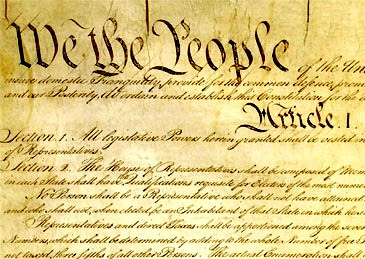 We the People of the Uni
insure domestic Tranquility, provide for the common defence, prom
and our Posterity, do ordain and establish this Constitution for the
Article I.
Section 1. All legislative Powers herein granted shall be vested in
of Representatives.
Section 2. The House of Representatives shall be composed of Mem
in each State shall have the Qualifications requisite for Electors of the most nume
No Person shall be a Representative who shall not have attained
and who shall not, when elected, be an Inhabitant of that State in which he sh
Representatives and direct Taxes shall be apportioned among the seve
Numbers, which shall be determined by adding to the whole Number of free P
not taxed, three fifths of all other Persons. The actual Enumeration shall